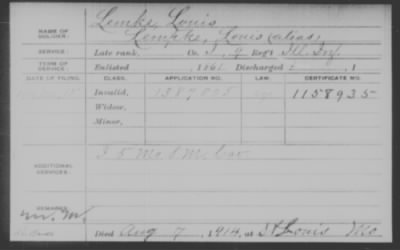 NAME OF SOLDIER:
Lemke, Louis
Lempke, Louis (alias)
SERVICE:
Late rank, Co. I, 9 Reg't Ill. Inf.
TERM OF SERVICE:
Enlisted , 1861. Discharged , 1
DATE OF FILING. CLASS. APPLICATION NO. LAW. CERTIFICATE NO.
Invalid, 1387805 1158935
Widow,
Minor,
ADDITIONAL SERVICES:
I 5 Mo. S. M. Cav.
REMARKS:
Died Aug 7, 1914, at St Louis Mo.